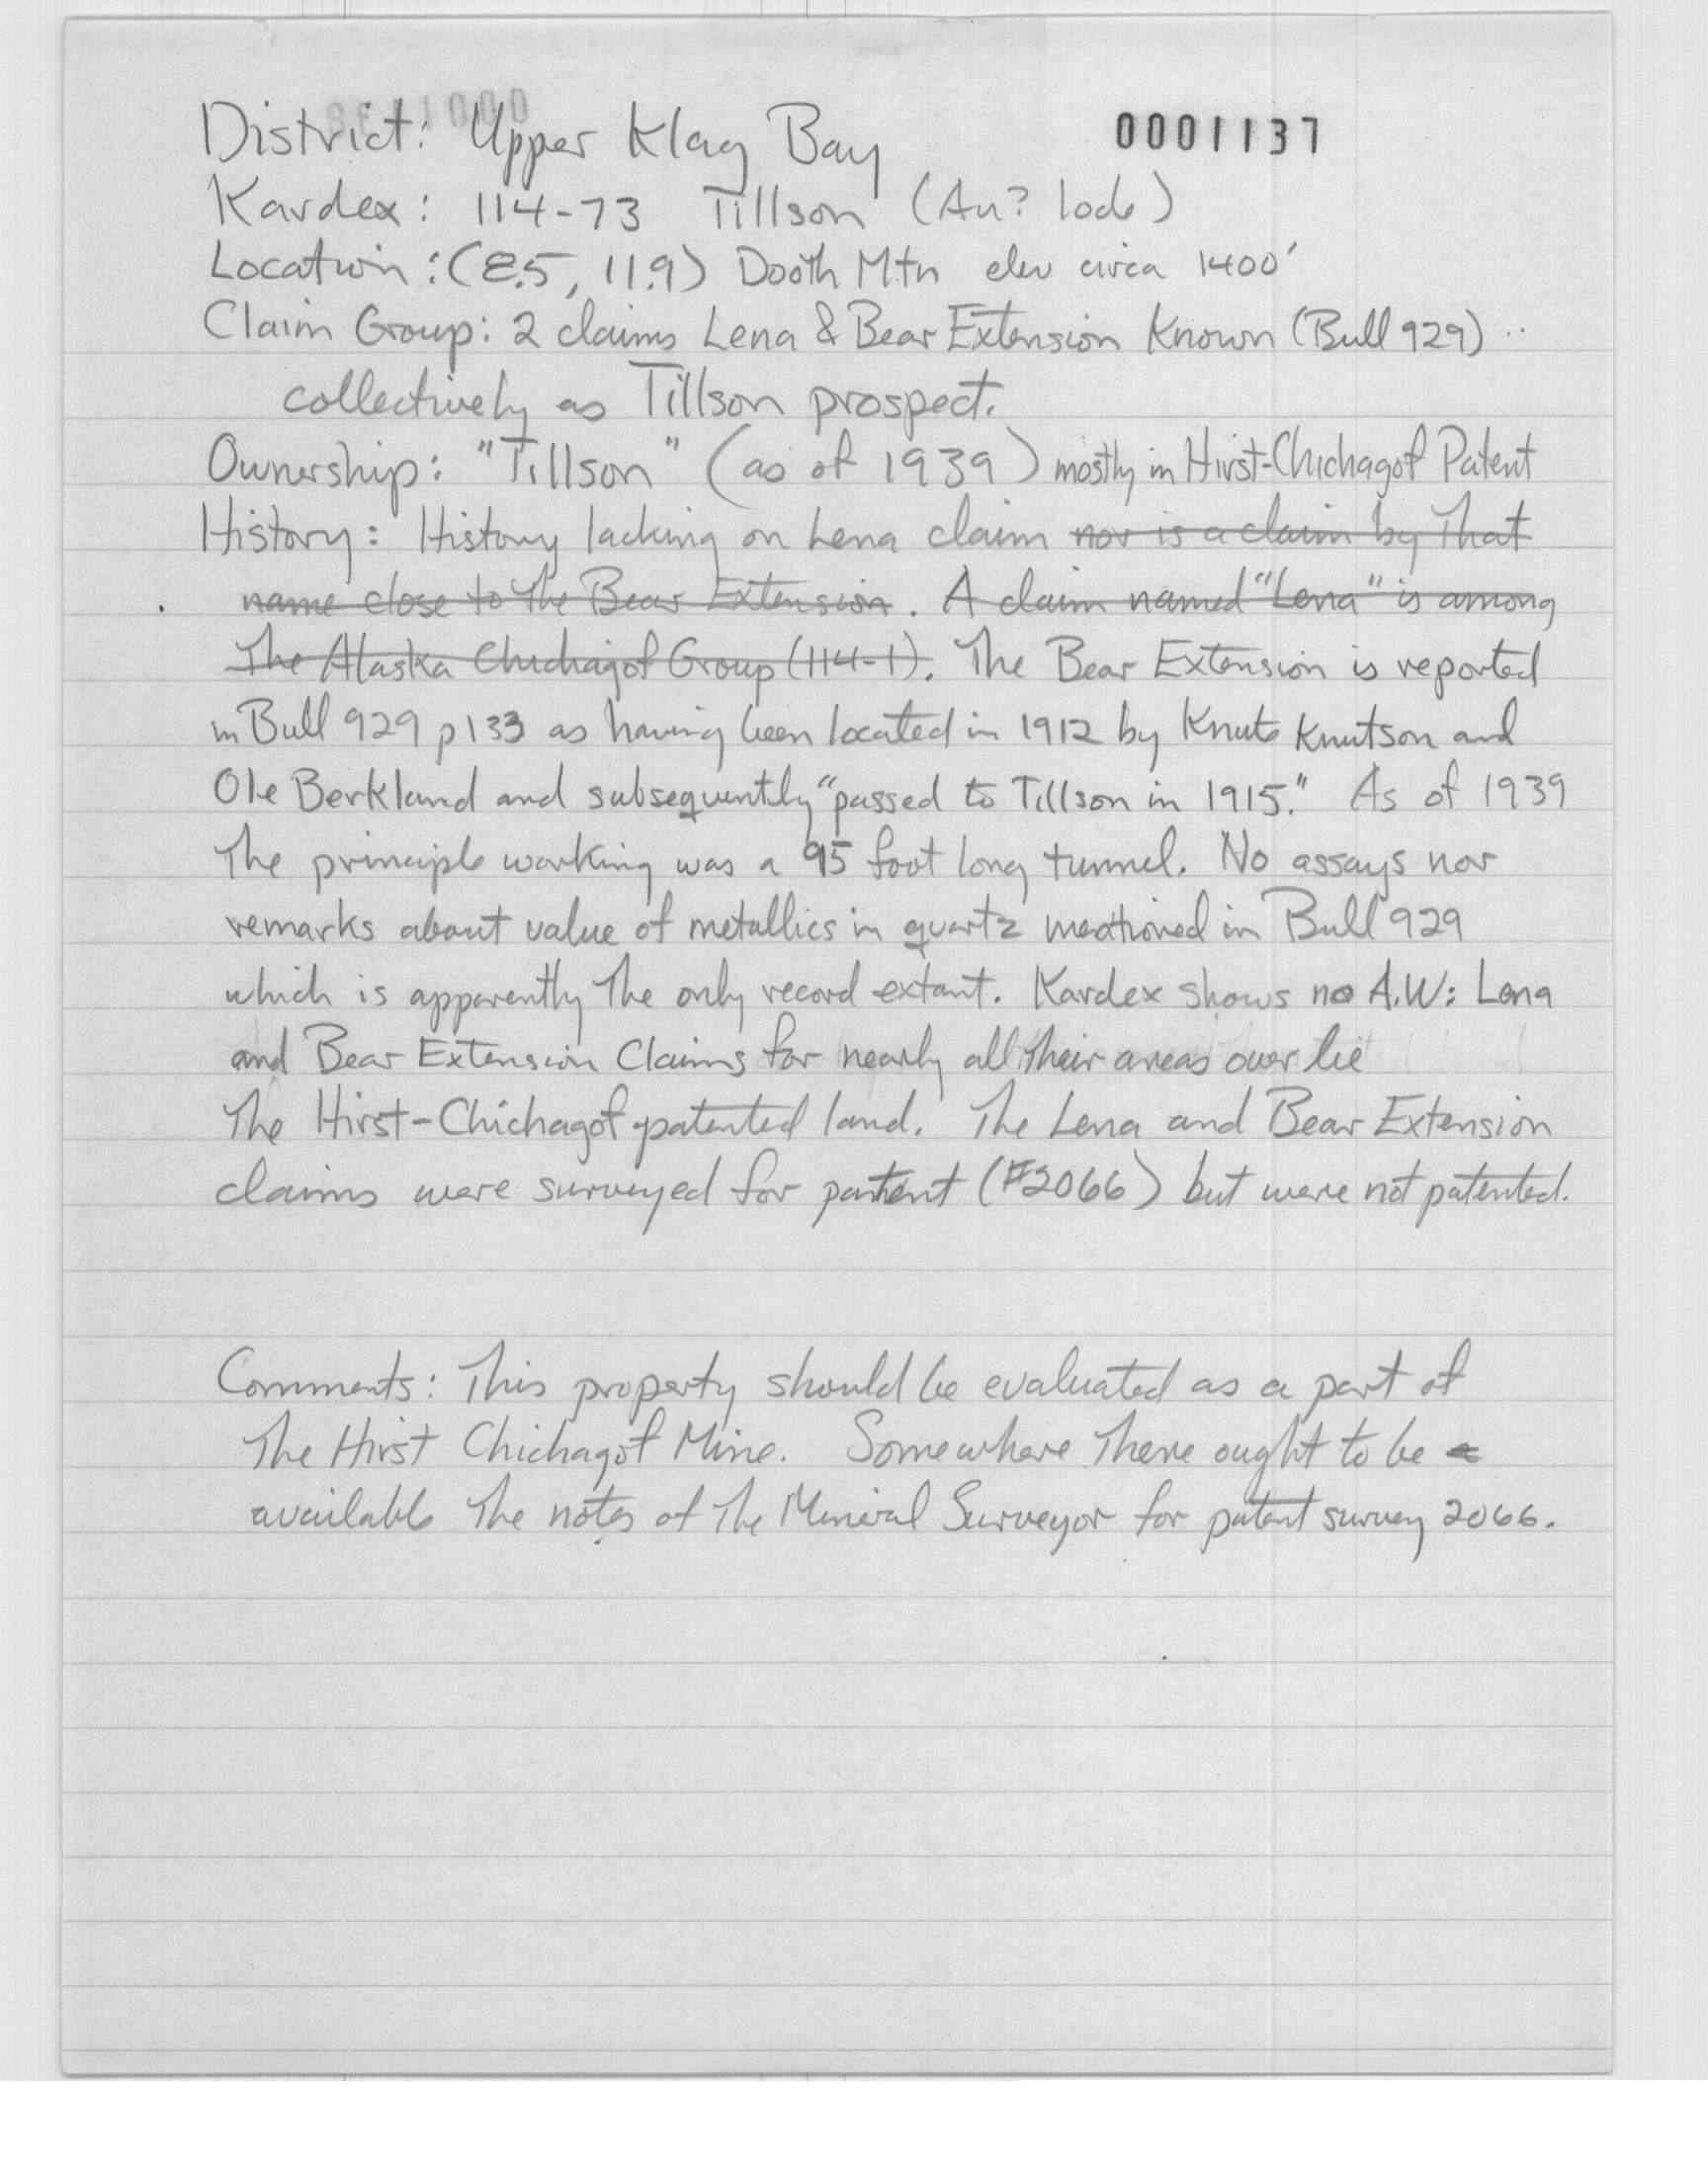 District: Upper Klag Bay 0001137
Kardex: 114-73 Tillson (Au? lode)
Location: (8.5, 11.9) Dooth Mtn elev circa 1400'
Claim Group: 2 claims Lena & Bear Extension Known (Bull 929)
collectively as Tillson prospect.
Ownership: "Tillson" (as of 1939) mostly in Hirst-Chichagof Patent
History: History lacking on Lena claim nor is a claim by That
name close to The Bear Extension. A claim named "Lena" is among
The Alaska Chichagof Group (114-1). The Bear Extension is reported
in Bull 929 p133 as having been located in 1912 by Knute Knutson and
Ole Berkland and subsequently "passed to Tillson in 1915." As of 1939
The principle working was a 95 foot long tunnel. No assays nor
remarks about value of metallics in quartz mentioned in Bull 929
which is apparently The only record extant. Kardex shows no A.W: Lena
and Bear Extension Claims for nearly all Their areas over lie
The Hirst-Chichagof patented land. The Lena and Bear Extension
claims were surveyed for patent (#2066) but were not patented.
Comments: This property should be evaluated as a part of
The Hirst Chichagof Mine. Somewhere There ought to be a
available The notes of The Mineral Surveyor for patent survey 2066.